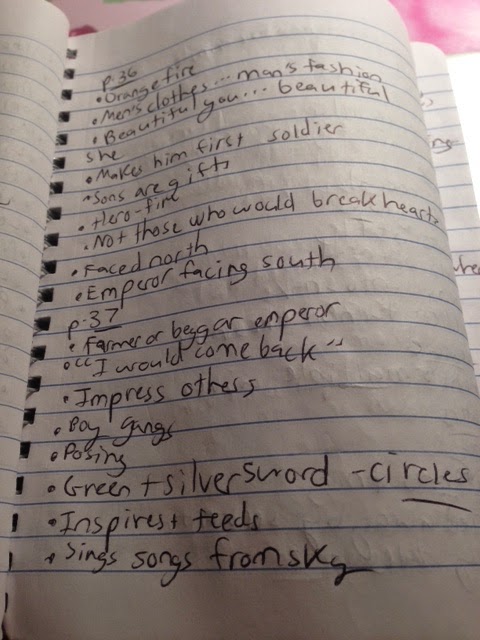 p.36
• Orange fire
• Men's clothes... man's fashion
• Beautiful you... beautiful
she
• Makes him first soldier
• Sons are gifts
• Hero-fire
• Not those who would break hearts
• Faced north
• Emperor facing south
p.37
• Farmer or beggar emperor
• "I would come back"
• Impress others
• Boy gangs
• Posing
• Green + silver sword - circles
• Inspires + feeds
• Sings songs from sky